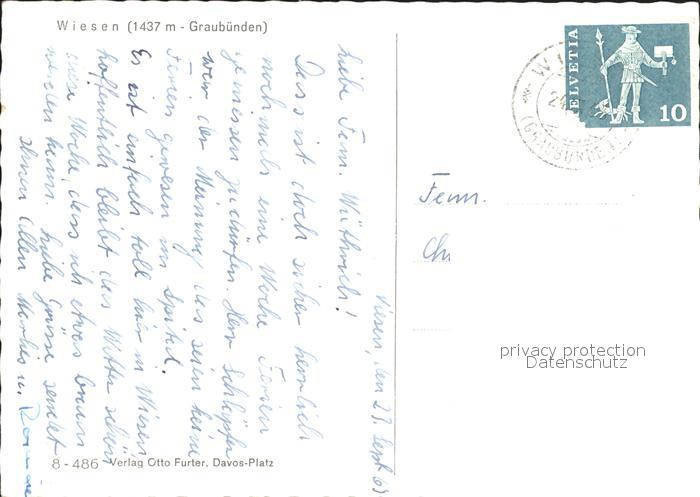 Wiesen (1437 m - Graubünden)
HELVETIA
10
(GRAUBÜNDEN)
Wiesen, den 29. Sept. 69
Liebe Fam. Wüthrich!
Dass ist doch sicher herrlich
nochmals eine Woche Ferien
geniessen zu dürfen. Herr Schlüpfer
war der Meinung, das seien keine
Ferien gewesen im Spital.
Es ist einfach toll hier in Wiesen,
hoffentlich bleibt das Wetter schön
diese Woche, dass ich etwas braun
werden kann. Liebe Grüsse sendet
Ihnen allen
Fam.
Ch
privacy protection
Datenschutz
8-486 Verlag Otto Furter, Davos-Platz